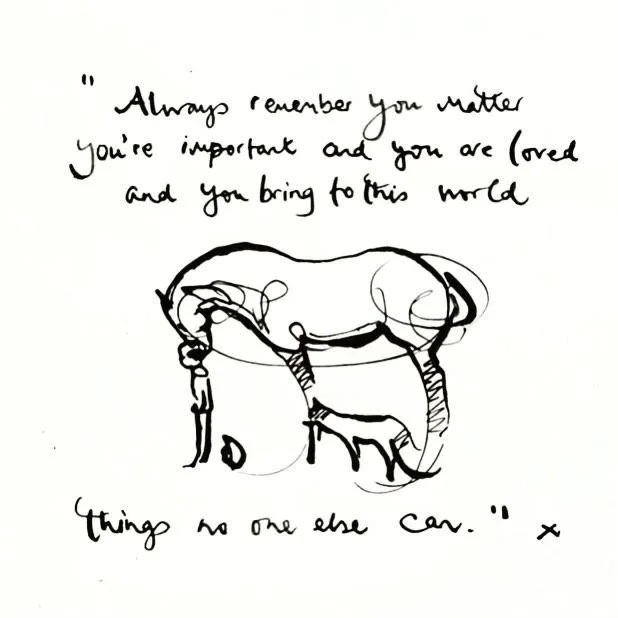 " Always remember you matter
you're important and you are loved
and you bring to this world
things no one else can. " x